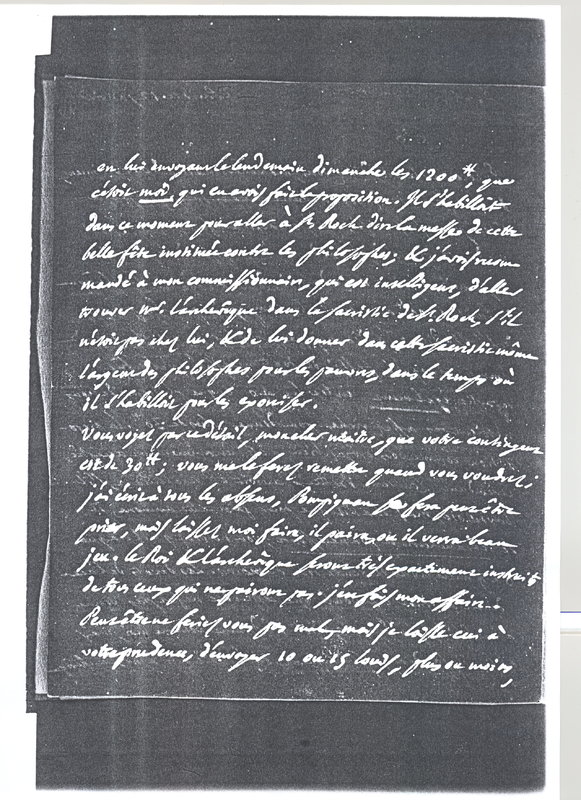 en lui envoyant le lendemain dimanche les 1200 ₶, que
c'étoit moi qui en avois fait la proposition. Il s'habilloit
dans ce moment pour aller à St Roch dire la messe de cette
belle fête instituée contre les philosophes; & j'avois recom
mandé à mon commissionnaire, qui est intelligent, d'aller
trouver mr. l'archevêque dans la sacristie de St. Roch, s'il
n'étoit pas chez lui, & de lui donner dans cette sacristie même
l'argent des philosophes pour les pauvres, dans le temps où
il s'habilloit pour les exorciser.
Vous voyez par ce détail, mon cher maître, que votre contingent
est de 30 ₶; vous me le ferez remettre quand vous voudrez;
j'ai écrit à tous les absens, Pompignan se fera peut être
prier, mais laissez moi faire, il paiera, ou il verra beau
jeu. le Roi & l'archevêque seront très exactement instruits
de tous ceux qui ne paieront pas. j'en fais mon affaire.
Peut être ne feriez vous pas mal, mais je laisse ceci à
votre prudence, d'envoyer 10 ou 15 louis, plus ou moins,